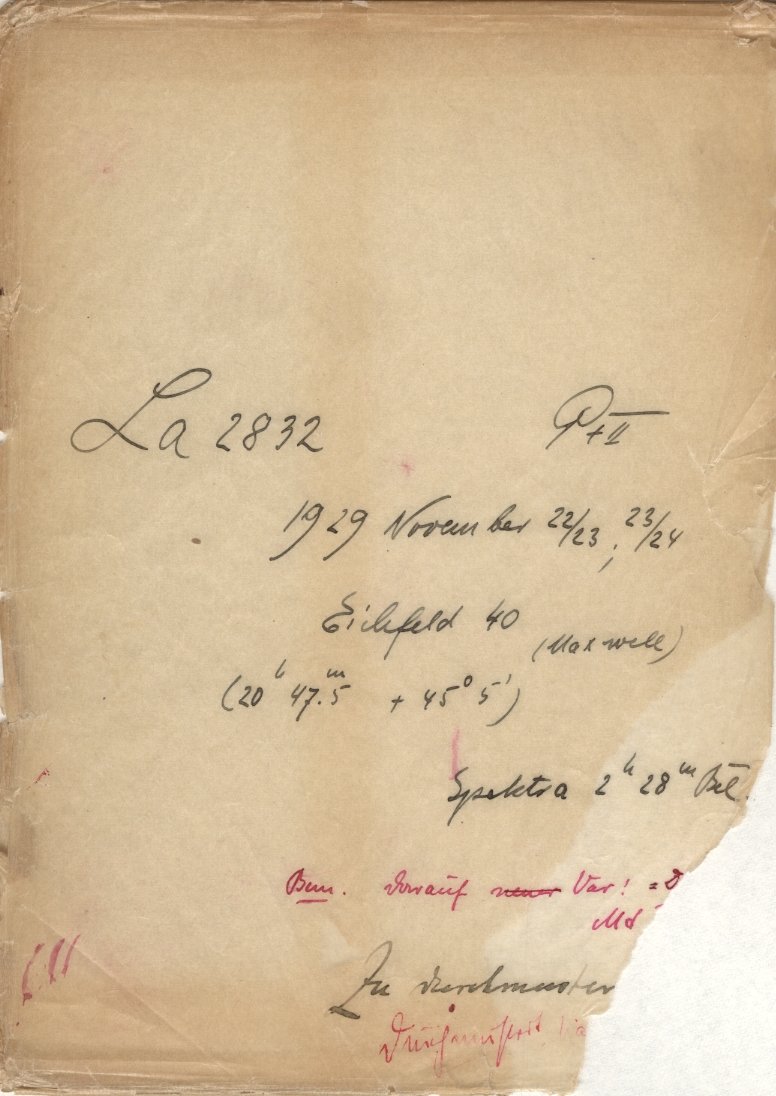 La 2832 P+II
1929 November 22/23; 23/24
Eichfeld 40 (Maxwell)
(20h 47.m5 + 45° 5')
Spektra 2h 28m Bel.
Bem. darauf neuer Var! =
Md
Zu durchmuster